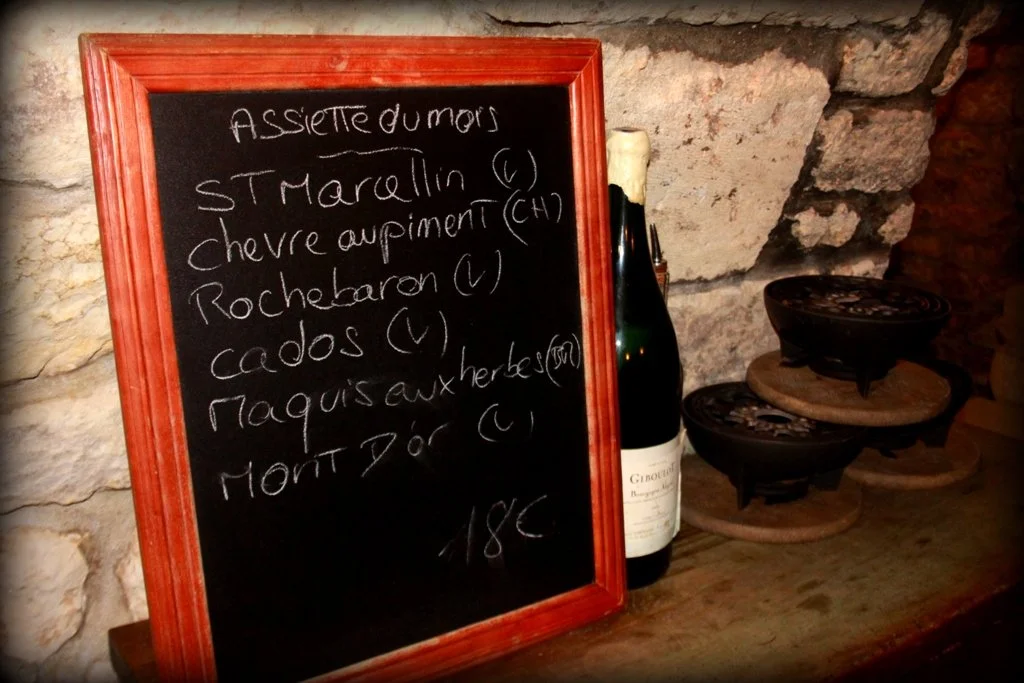 Assiette du mois
ST Marcellin (V)
chevre au piment (CH)
Rochebaron (V)
cados (V)
Maquis aux herbes (BR)
MONT D'ór (V)
18€
GIBOULOT
Bourgogne